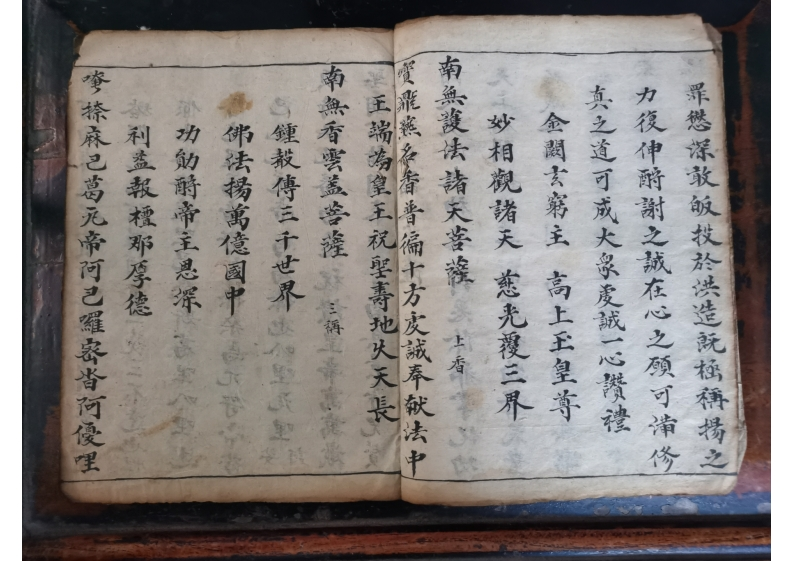 罪愆深敢皈投於洪造既極稱揚之
力復伸酧謝之誠在心之願可滿修
真之道可成大衆虔誠一心讚禮
金闕玄窮主 高上玉皇尊
妙相觀諸天 慈光覆三界
南無護法諸天菩薩 上香
寶羅無名香普徧十方虔誠奉献法中
王端為皇王祝聖壽地久天長
南無香雲盖菩薩 三稱
鍾殼傳三千世界
佛法揚萬億國中
功勛酧帝主恩深
利益報檀那厚德
捺麻巴葛瓦帝阿巴羅密沓阿優哩